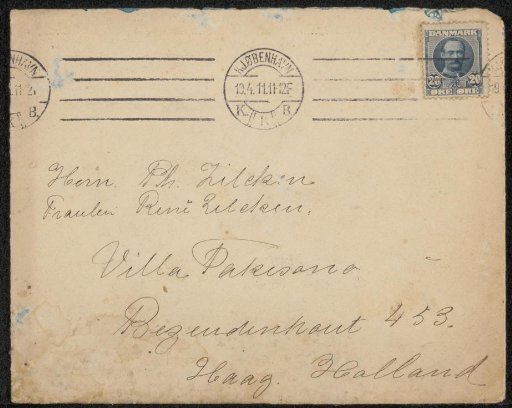 DANMARK
20 20
ØRE ØRE
KJØBENHAVN
19.4.11.11-12F
K. B.
Herrn Ph. Zilcken
Fraulein Renè Zilcken.
Villa Pakesono
Bezuidenhout 453.
Haag. Holland